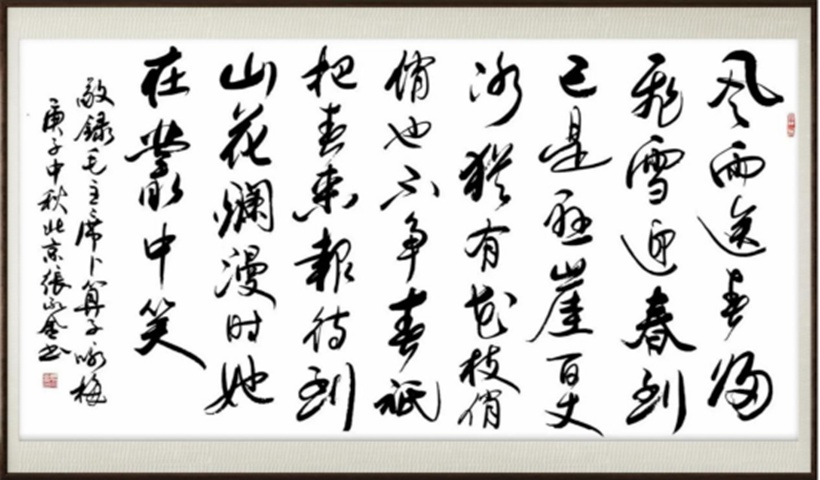 风雨送春归
飛雪迎春到
已是悬崖百丈
冰犹有花枝俏
俏也不争春祗
把春来報待到
山花爛漫时她
在叢中笑
敬録毛主席卜算子咏梅
庚子中秋北京張永金书